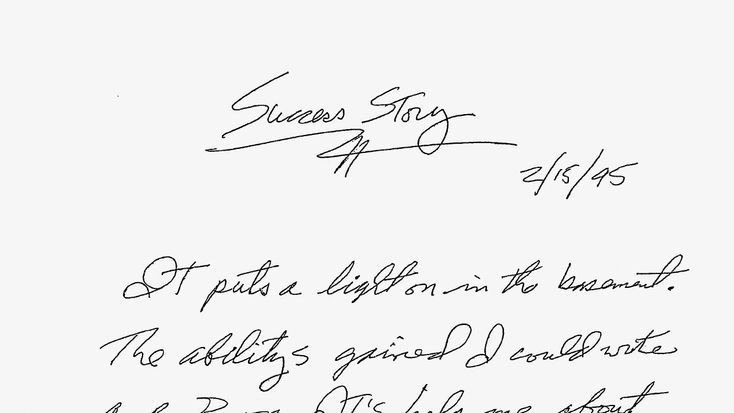 Success Story
2/15/95
It puts a light on in the basement.
The abilitys gained I could write
It's help me about